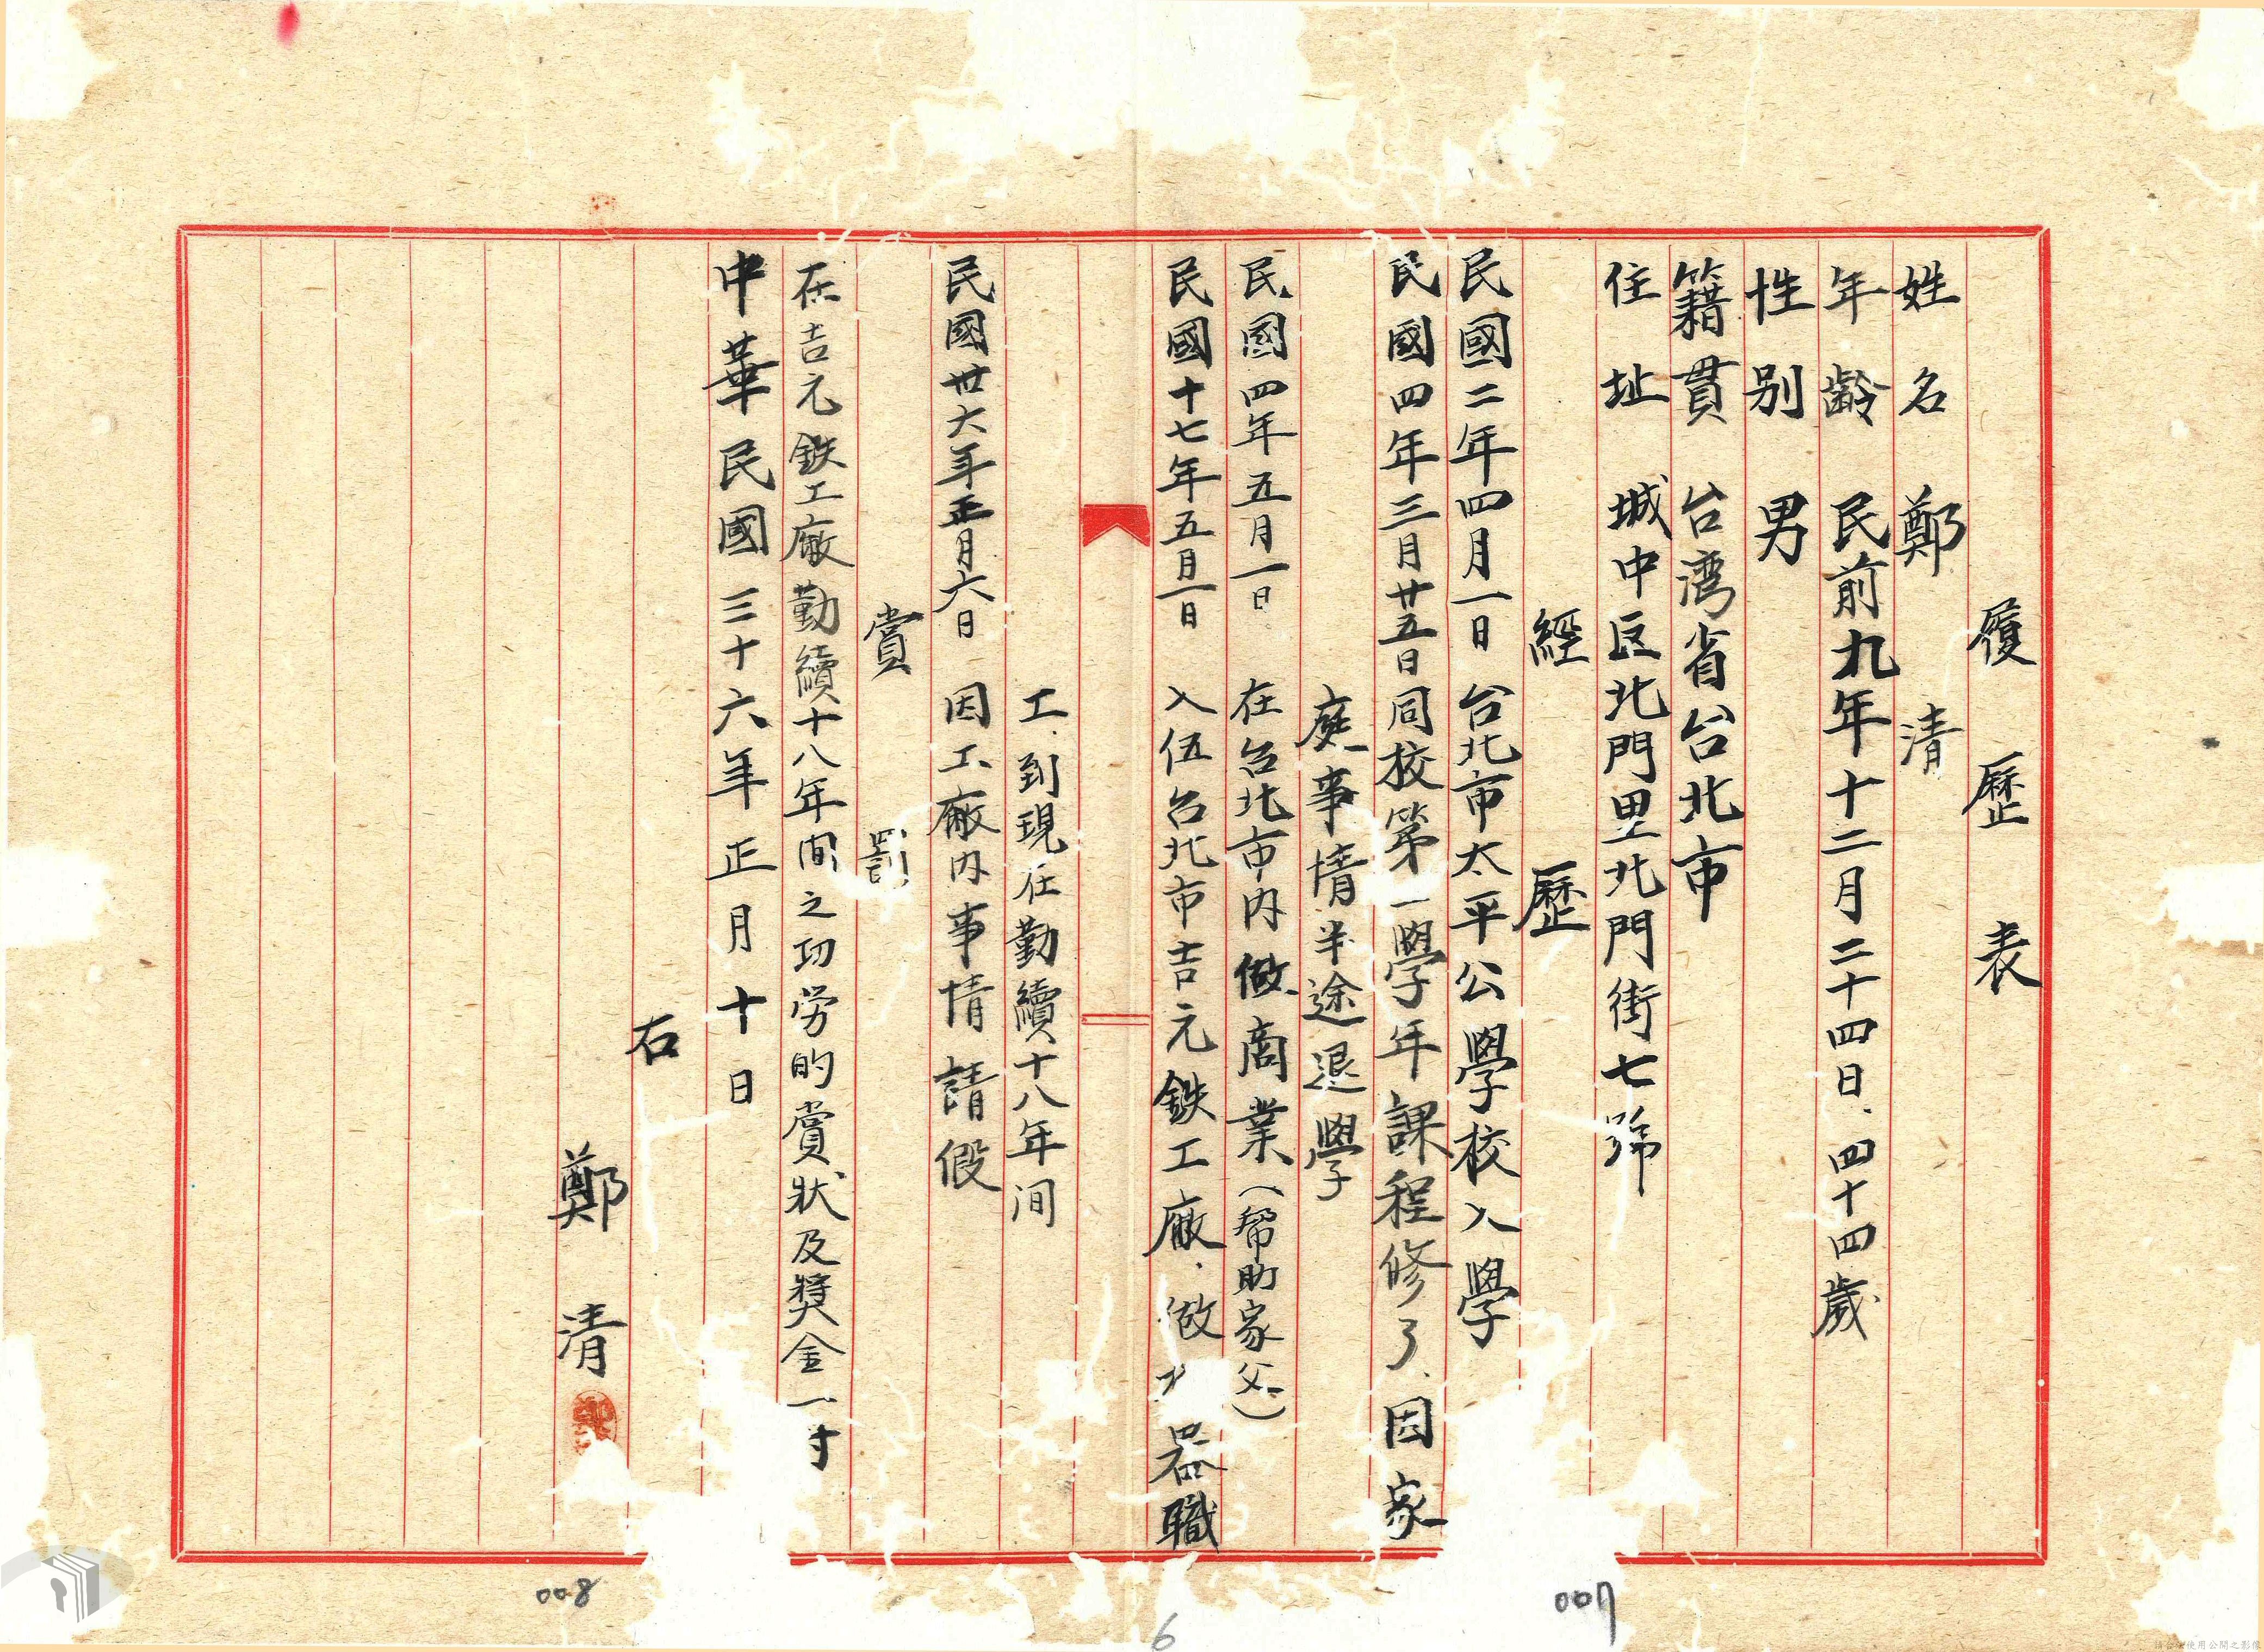 履歷表
姓名 鄭清
年齡 民前九年十二月二十四日、四十四歲
性别 男
籍貫 台湾省台北市
住址 城中区北門里北門街七號
經歷
民國二年四月一日 台北市太平公學校入學
民國四年三月廿五日 同校第一學年課程修了、因家
庭事情半途退學
民國四年五月一日 在台北市内做商業(幇助家父)
民國十七年五月一日 入伍台北市吉元鉄工廠、做 器職
工、到現在勤續十八年间
民國卅六年正月六日 因工廠内事情請假
賞罰
在吉元鉄工廠勤續十八年間之功労的賞狀及奬金一封
中華民國三十六年正月十日
右
鄭清
008
007
6